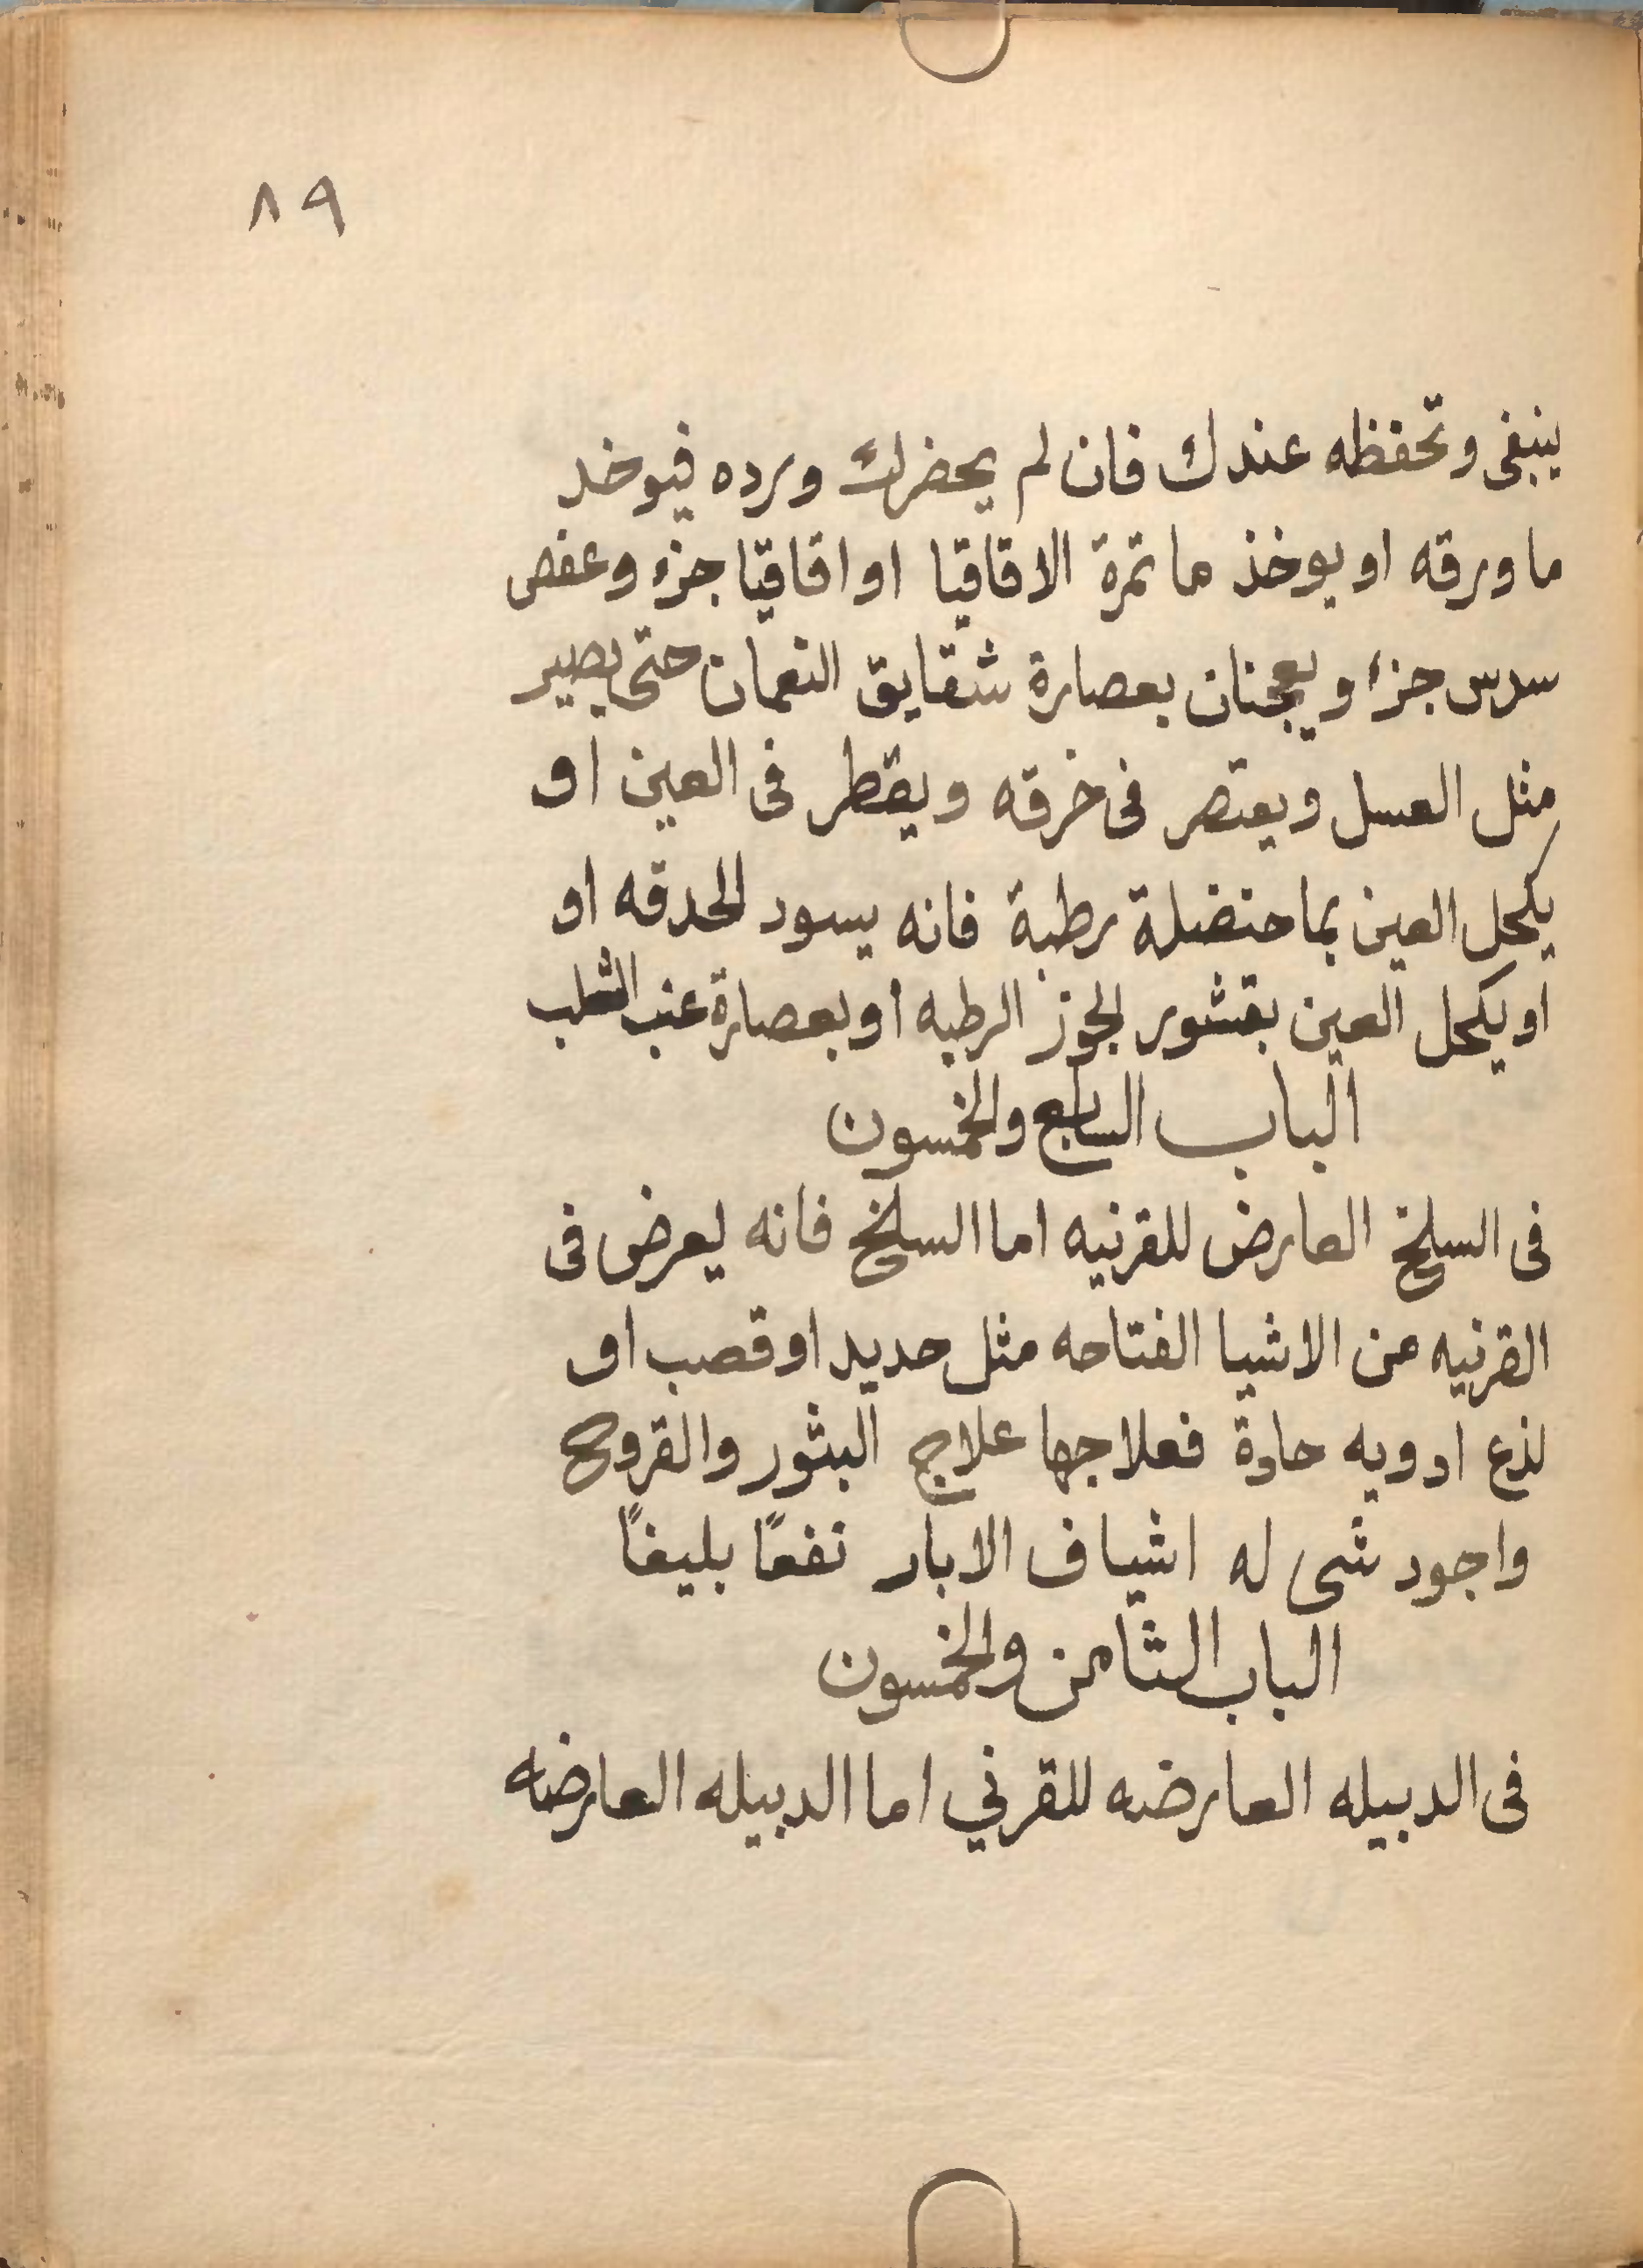 ٨٩
ينبغى وتحفظه عندك فان لم يحضرك ورده فيوخد
ما ورقه او يوخذ ما تمرة الاقاقيا او اقاقيا جزء وعفص
سدس جزء ويعجنان بعصارة شقايق النعمان حتى يصير
مثل العسل ويعتصر فى خرقه ويقطر فى العين او
يكحل العين بما حنضلة رطبة فانه يسود الحدقه او
او يكحل العين بقشور الجوز الرطبه او بعصارة عنب الثعلب
الباب السابع والخمسون
فى السلخ العارض للقرنيه اما السلخ فانه يعرض فى
القرنيه من الاشيا الفتاحه مثل حديد او قصب او
لذع ادويه حادة فعلاجها علاج البثور والقروح
واجود شى له اشياف الابار نفعًا بليغًا
الباب الثامن والخمسون
فى الدبيله العارضه للقرني اما الدبيله العارضه